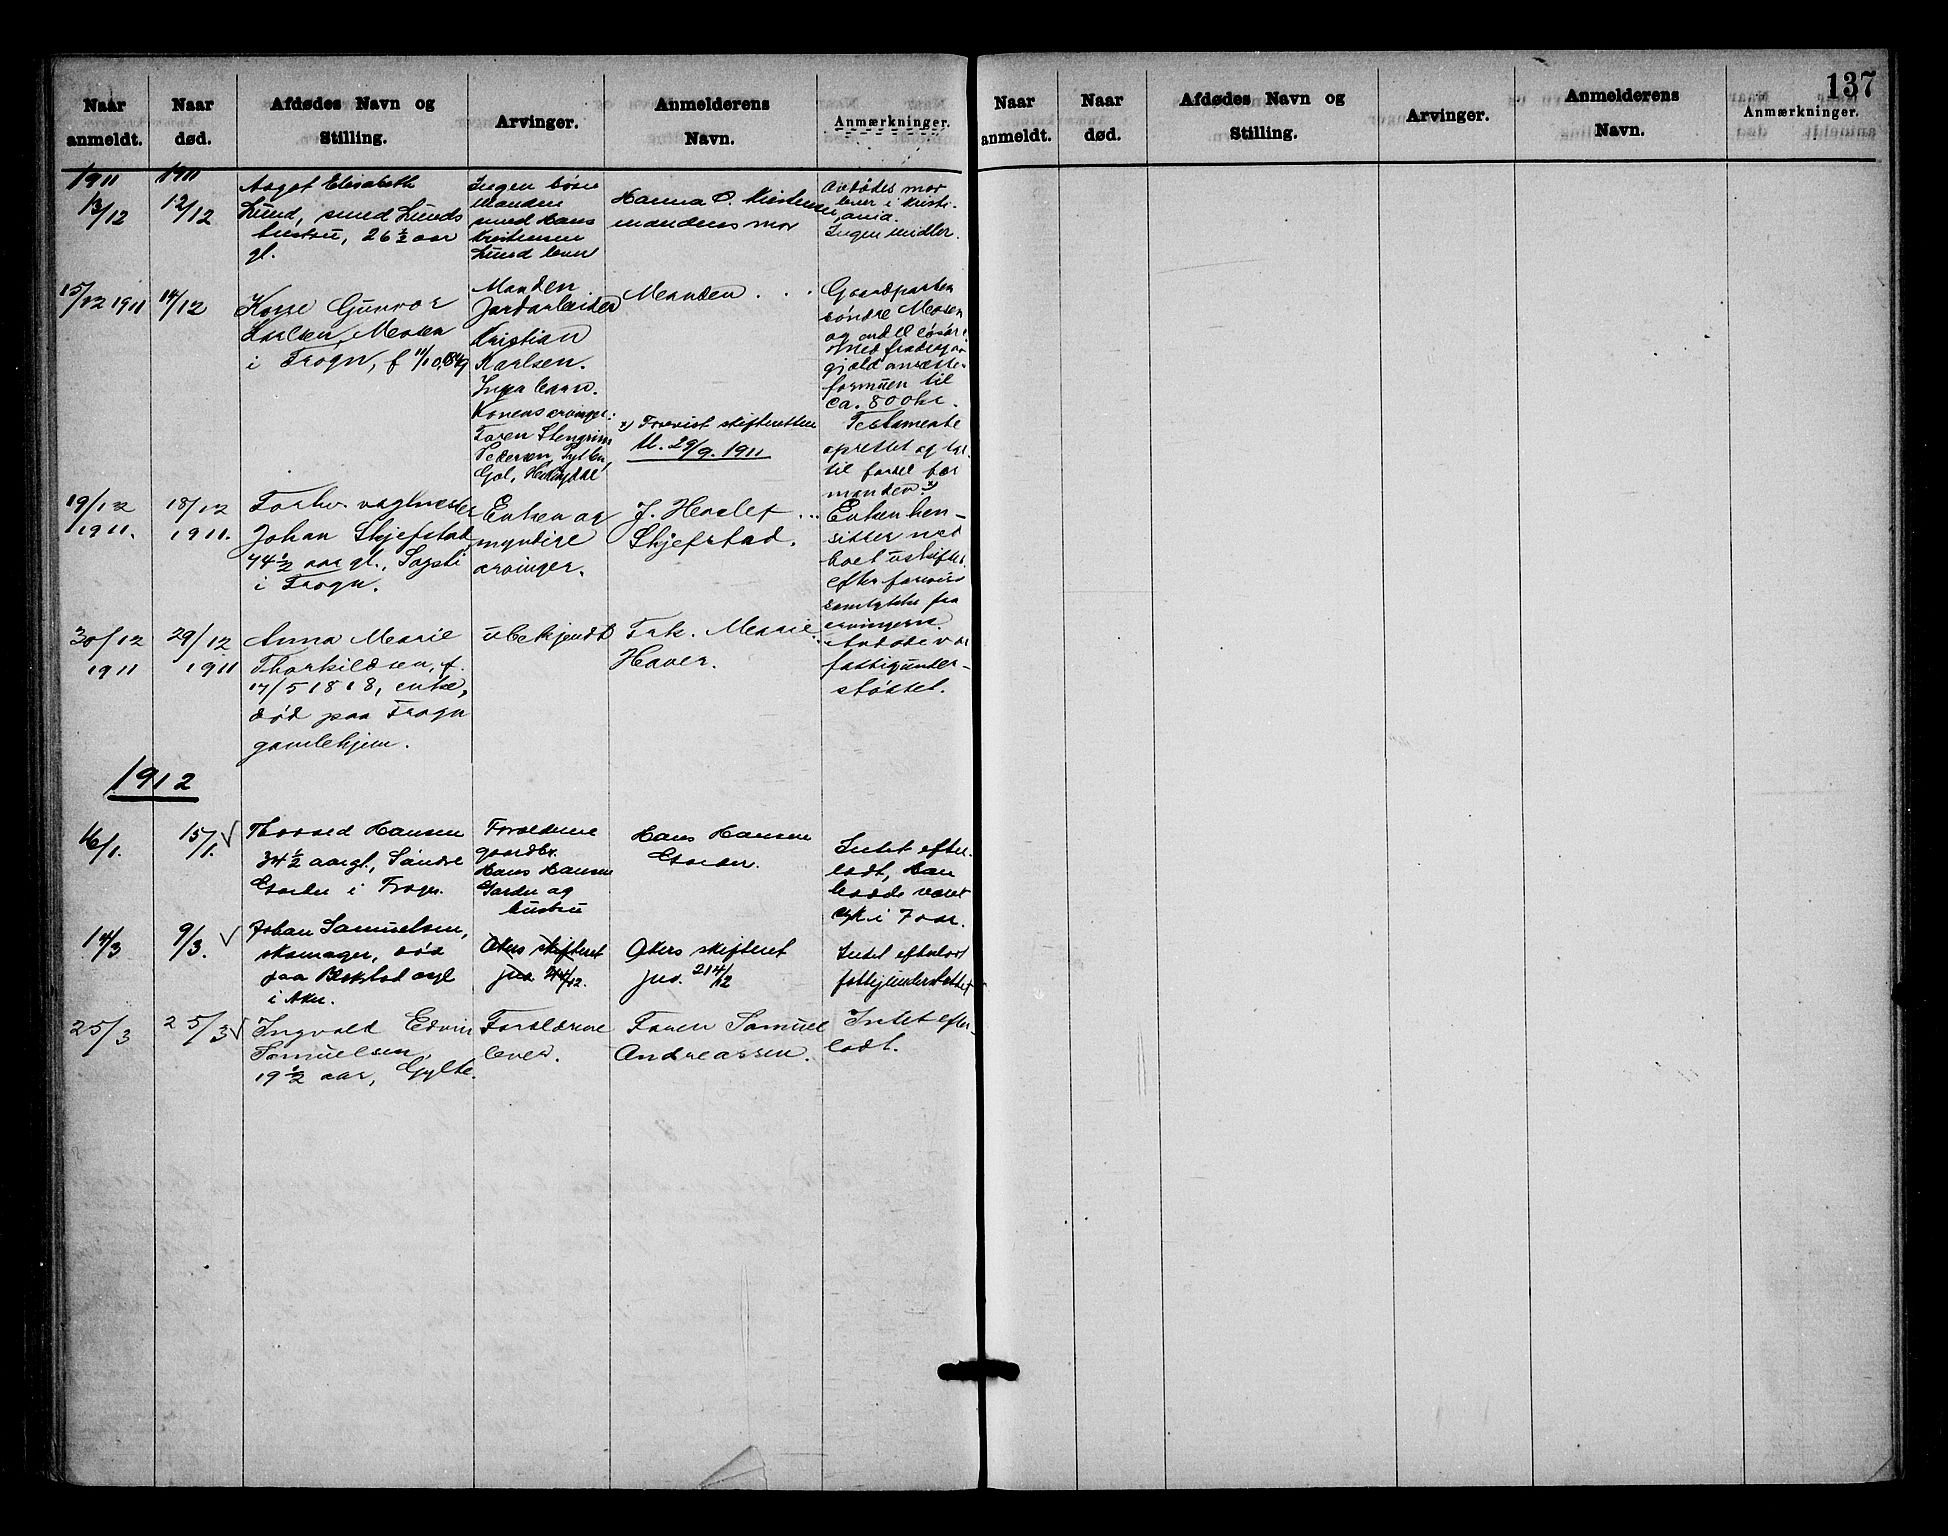 137
Naar anmeldt.
Naar død.
Afdødes Navn og Stilling.
Arvinger.
Anmelderens Navn.
Anmærkninger.
1911
13/12
1911
12/12
Aagot Elisabeth
Lund, smed Lunds
hustru, 26 ½ aar
gl.
Ingen børn
Manden
smed Hans
Kristensen
Lund lever
Hanna O. Kristensen
mandens mor
Avdødes mor
lever i Kristi-
ania.
Ingen midler.
15/12 1911
14/12
Gunvor
Karlsen, Mosen
i Frogn, f 11/10 1849
Manden
Jordarbeider
Kristian
Karlsen.
Inga barn.
Konens arvinger:
Pedersen
Gol,
Manden . . .
x) Forevist skifteretten
d. 29/9. 1911
Gaardparten
søndre Mosen
og endel løsøre.
Med fradrag av
gjæld ansættes
formuen til
ca. 800 kr.
Testamente
oprettet og
til fordel for
manden x)
19/12
1911.
18/12
1911.
Forhv. vagtmester
Johan Skjefstad
74 ½ aar gl., Sogsti
i Frogn.
Enken og
myndige
arvinger.
J. Herlef ...
Skjefstad.
Enken hen-
sitter med
boet uskiftet
efter
samtykke fra
arvingerne
30/12
1911
29/12
1911
Anna Marie
Thorkildsen, f.
17/5 1818, enke,
død paa Frogn
gamlehjem.
ubekjendt
Frk. Marie
Haver.
Avdøde var
fattigunder-
støttet.
1912
16/1.
15/1. ✓
Thorvald Hansen
34 ½ aar gl., Søndre
Garder i Frogn.
Forældrene
gaardbr.
Hans Hansen
Garder og
hustru
Hans Hansen
Garder.
Intet efter-
ladt, Han
hadde været
syk i 7 aar.
14/3
9/3. ✓
Johan Samuelsen,
skomager, død
paa Blakstad asyl
i Aker.
Akers skifteret
jno. 214/12.
Akers skifteret
jno. 214/12
Intet efterladt
fattigunderstøttet
25/3
25/3 ✓
Ingvald Edvin
Samuelsen,
19 ½ aar, Gylte.
Forældrene
lever.
Faren Samuel
Andreassen.
Intet efter-
ladt.
Naar anmeldt.
Naar død.
Afdødes Navn og Stilling.
Arvinger.
Anmelderens Navn.
Anmærkninger.